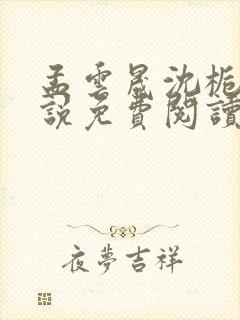 孟雲晟沈梔
說免費閱讀
夜夢吉祥